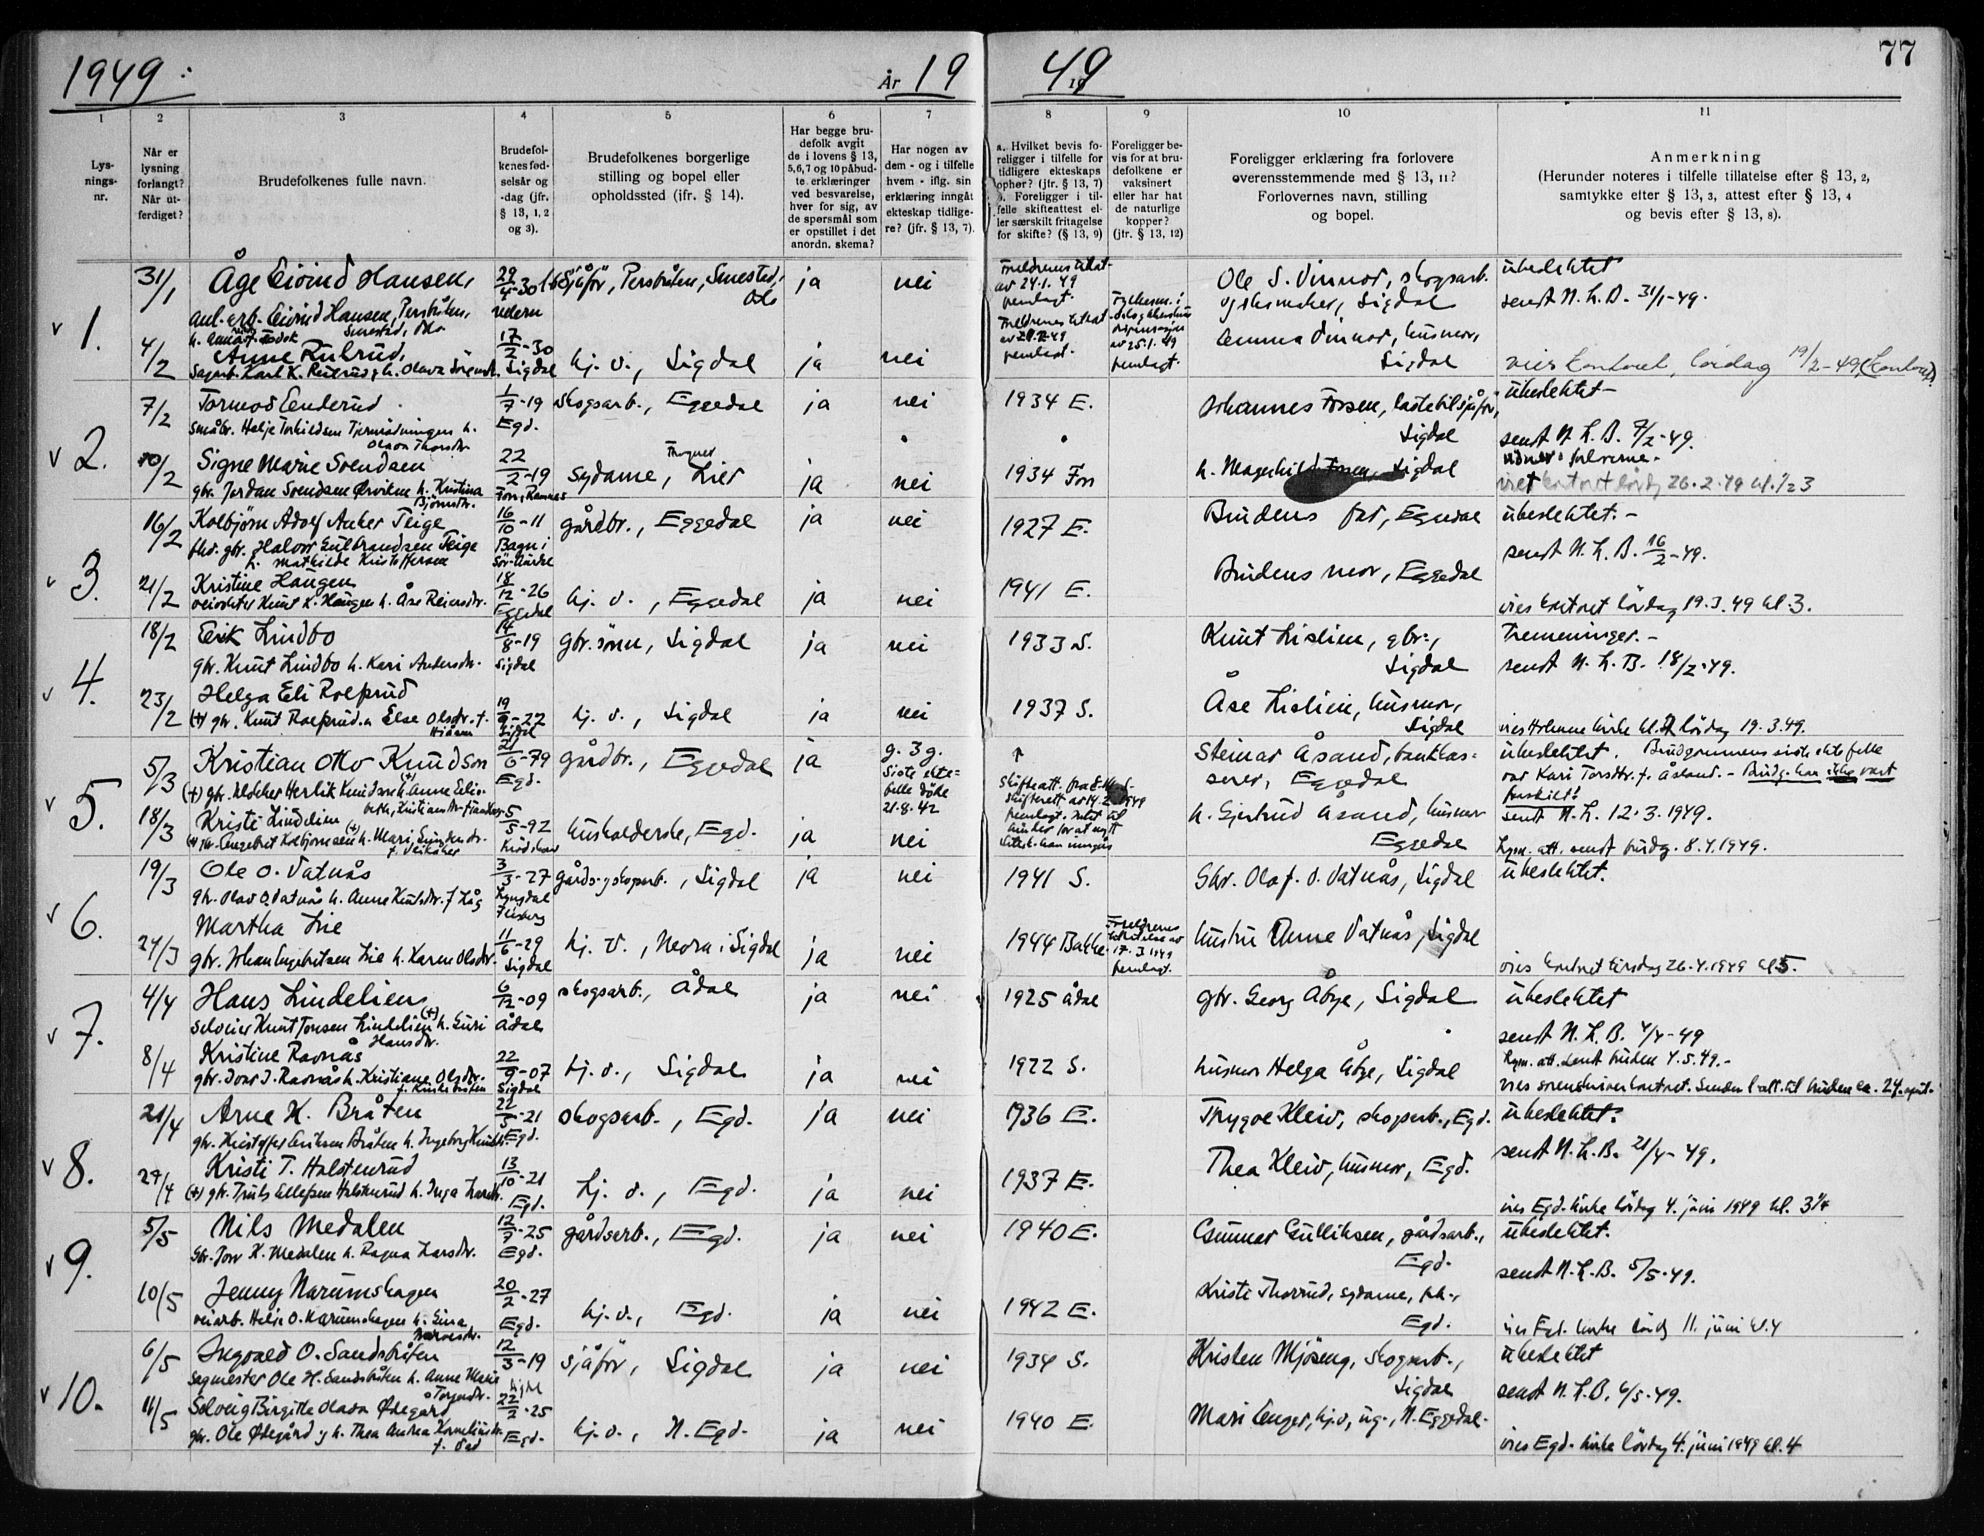 1949.
År 19 49
77
1 2 3 4 5 6 7 8 9 10 11
Lysnings-nr.
Når er lysning forlangt? Når utferdiget?
Brudefolkenes fulle navn.
Brudefolkenes fødselsår og -dag (jfr. § 13, 1, 2 og 3).
Brudefolkenes borgerlige stilling og bopel eller opholdssted (ifr. § 14).
Har begge brudefolk avgit de i lovens § 13, 5,6,7 og 10 påbudte erklæringer ved besvarelse, hver for sig, av de spørsmål som er opstillet i det anordn. skema?
Har nogen av dem - og i tilfelle hvem - iflg. sin erklæring inngåt ekteskap tidligere? (jfr. § 13, 7).
a. Hvilket bevis foreligger i tilfelle for tidligere ekteskaps ophør? (jfr. § 13, 7)
b. Foreligger i tilfelle skifteattest eller særskilt fritagelse for skifte? (§ 13, 9)
Foreligger bevis for at brudefolkene er vaksinert eller har hat de naturlige kopper? (jfr. § 13, 12)
Foreligger erklæring fra forlovere overensstemmende med § 13, 11? Forlovernes navn, stilling og bopel.
Anmerkning
(Herunder noteres i tilfelle tillatelse efter § 13, 2, samtykke efter § 13, 3, attest efter § 13, 4 og bevis efter § 13, 8).
v 1.
31/1 Åge Eivind Hansen, 29/4-30 sjåfør, Perstråten, Smestad, Oslo ja nei
av 24.1.49 fremlagt.
Ole S. Vinnor, skogsarb. Sigdal
ubeslektet
sendt N.L.B. 31/1-49.
4/2 Anne Rubrud, 17/2-30 Sigdal hj. v., Sigdal ja nei
fremlagt.
av 25.1.49 fremlagt.
Emma Vinnor, husmor, Sigdal
vies kontoret, lördag 19/2-49 (kontoret)
v 2.
7/2 Tormod Enderud 1/7-19 Egd. skogsarb., Eggedal ja nei 1934 E.
småbr. Helje Torkildsen
Johannes Fossen, lastebilsjåför, Sigdal
ubeslektet
sendt N.L.B. 7/2-49.
10/2 Signe Marie Svendsen 22/2-19 sydame, Lier ja nei 1934
gbr. Jordan Svendsen h. Kristina
h. Magnhild Fossen, Sigdal
viet kontoret lördag 26.2.49 kl. 1/2 3
v 3.
16/2 Kolbjörn Adolf Anker Teige 16/10-11 Bagn i gårdbr., Eggedal ja nei 1927 E.
gbr. Halvor Gulbrandsen Teige h. Mathilde Kristoffersen
Brudens far, Eggedal
ubeslektet.-
sendt N.L.B. 16/2-49.
21/2 Kristine Haugen 18/12-26 Eggedal hj. v., Eggedal ja nei 1941 E.
Knut K. Haugen h. Åse Reiersdr.
Brudens mor, Eggedal
vies kontoret lördag 19.3.49 kl. 3.
v 4.
18/2 Eerik Lindbo 14/8-19 Sigdal gbr. sönn, Sigdal ja nei 1933 S.
gbr. Knut Lindbo h. Kari Andersdr.
Knut Lislien, gbr., Sigdal
tremenninger.-
sendt N.L.B. 18/2-49.
23/2 Helga Eli Rolfsrud 19/9-22 Sigdal hj. v., Sigdal ja nei 1937 S.
(+) gbr. Knut Rolfsrud Else Olsdr. f.
Åse Lislien, husmor, Sigdal
vies Holmen kirke lördag 19.3.49.
v 5.
5/3 Kristian Otto Knudson 21/6-79 Egd. gårdbr., Eggedal ja g. 3 g. Siste ektefelle döde 21-8.42
Steinar Åsand, bankkasserer, Eggedal
ubeslektet. Brudgommens siste ektefelle var Kari Torsdtr. f. Åsland.- Brudg. har ikke vært forskilt!
sendt N.L. 12.3.1949.
18/3 Kristi Lindelien 5/5-92 husholderske, Egd. ja nei
h. Gjertrud Åsand, husmor Eggedal
Lysn. att. sendt brudg. 8.4.1949.
v 6.
19/3 Ole O. Vatnås 3/3-27 gårds- og skogsarb., Sigdal ja nei 1941 S.
gbr. Olav O. Vatnås h. Anne Knutsdr. f.
Gbr. Olaf O. Vatnås, Sigdal
ubeslektet.
24/3 Martha Lie 11/6-29 Sigdal hj. v., Nedre i Sigdal ja nei 1944 Bakke
gbr. Johan Engebretsen Lie h. Karen Olsdr.
17.3.1949 fremlagt.
hustru Anne Vatnås, Sigdal
vies kontoret tirsdag 26.4.1949 kl. 5.
v 7.
4/4 Hans Lindelien 6/12-09 Ådal skogsarb., Ådal ja nei 1925 Ådal
selveier Knut Tonsen Lindelien (+) h. Guri Hansdr.
gbr. Georg Åbye, Sigdal
ubeslektet
sendt N.L.B. 4/4-49
8/4 Kristine Ravnås 22/9-07 Sigdal hj. v., Sigdal ja nei 1922 S.
gbr. Ivar J. Ravnås h. Kristiane Olsdr.
husmor Helga Åbye, Sigdal
Lysn. att. sendt bruden 4.5.49.-
vies sorenskriverkontoret. Sendes l-att. til bruden ca. 24. april.
v 8.
21/4 Arne K. Bråten 22/5-21 Egd. skogsarb., Egd. ja nei 1936 E.
gbr. Kristoffer Eriksen Bråten h. Ingeborg
Trygve Kleiv, skogsarb., Egd.
ubeslektet.
sendt N.L.B. 21/4-49.
29/4 Kristi T. Halstenrud 13/10-21 Egd. hj. v., Egd. ja nei 1937 E.
(+) gbr. Truls Ellefsen Halstenrud h. Inga Larsdr.
Thea Kleiv, husmor, Egd.
vies Egd. kirke lördag 4. juni 1949 kl. 3 1/4
v 9.
5/5 Nils Medalen 12/7-25 Egd. gårdsarb., Egd. ja nei 1940 E.
Gbr. Tov K. Medalen h. Ragna Larsdr.
Gunnar Gulliksen, gårdsarb., Egd.
ubeslektet.
sendt N.L.B. 5/5-49.
10/5 Jenny Narumshagen 20/2-27 Egd. hj. v., Egd. ja nei 1942 E.
veiarb. Helje O. Narumshagen h. Gina
Kristi Thorrud, sydame, Egd.
vies Egd. kirke lördag 11. juni kl. 4
v 10.
6/5 Ingvald O. Sandsbråten 12/3-19 Sigdal sjåför, Sigdal ja nei 1934 S.
Sagmester Ole H. Sandsbråten h. Anne Marie
Kristen Mjöseng, skogsarb., Sigdal
ubeslektet
sendt N.L.B. 6/5-49.
11/5 Solveig Birgitte Olava Ødegård 22/2-25 Egd. hj. v., N. Egd. ja nei 1940 E.
gbr. Ole Ødegård og h. Thea Andrea
Mari Enger, hj.v., ug., N. Eggedal.
vies Egd. kirke lördag 4. juni 1949 kl. 4